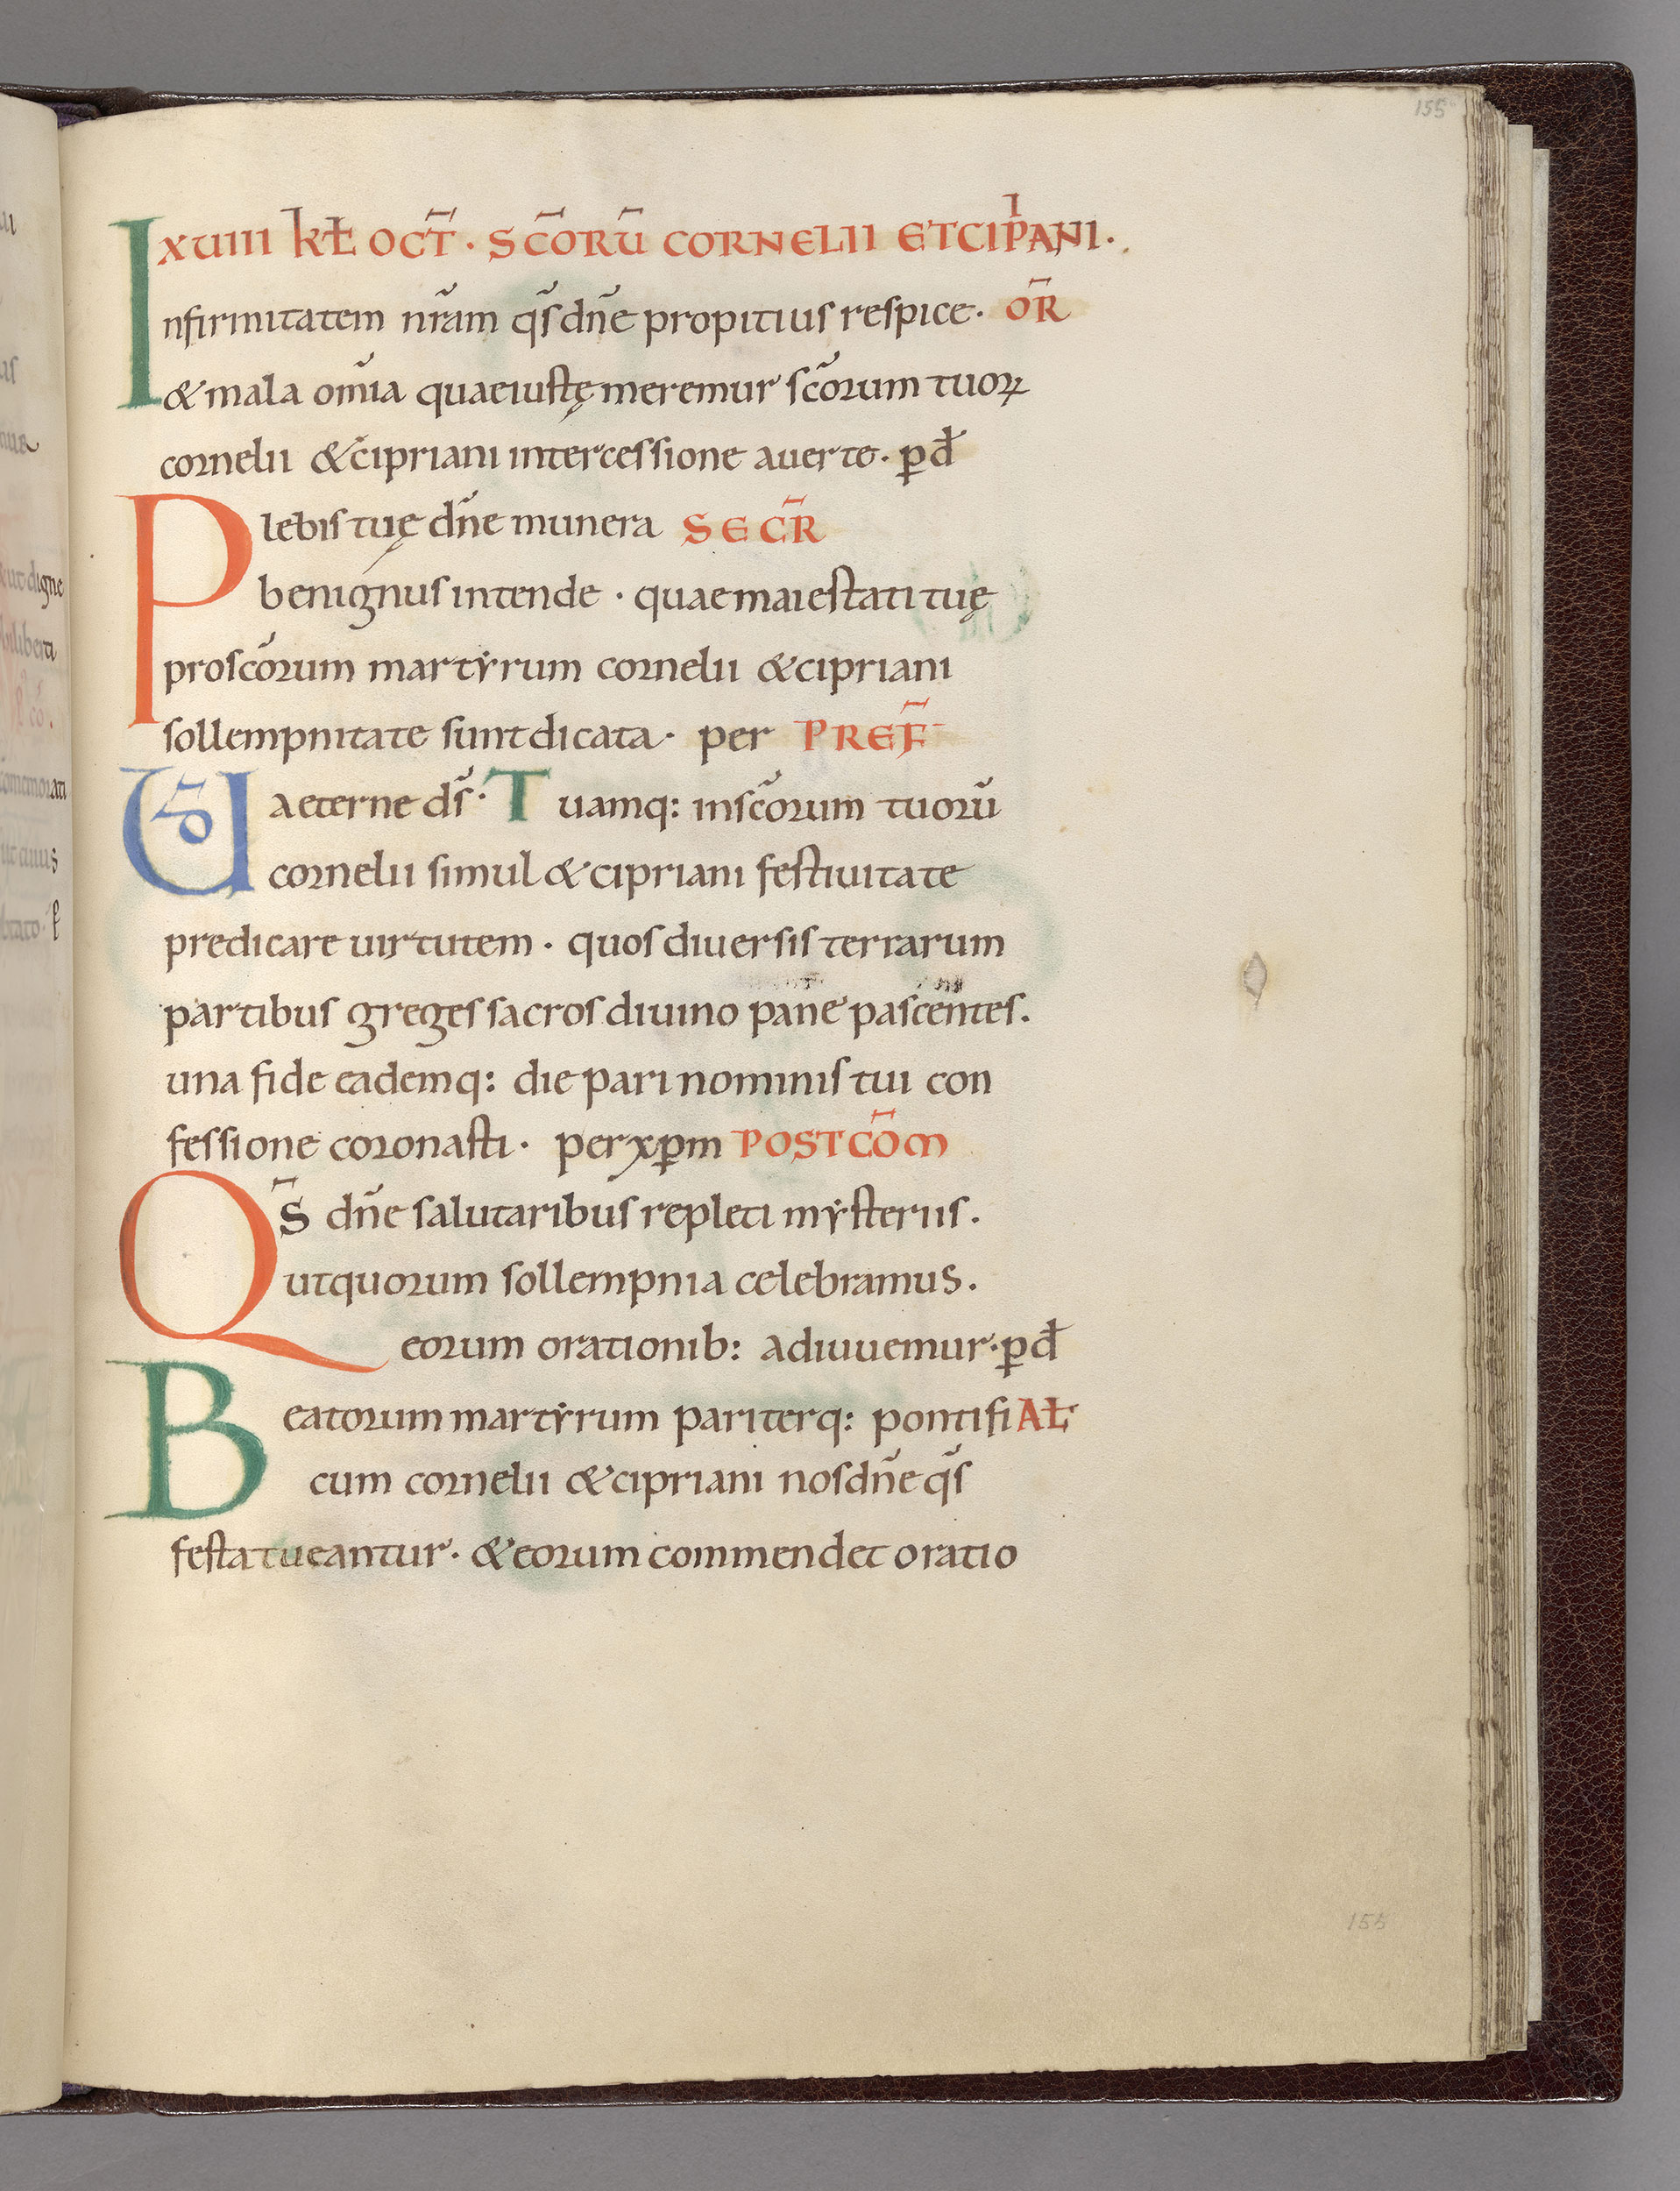 155
XUIIII kł OCT̄ · SC̄ORŪ CORNELII ETCIPIANI ·
Infirmitatem nr̄am qs̄ dn̄e propitius respice · OR̄
& mala om̄ia quaeiustę meremur sc̄orum tuoꝝ
cornelii & cipriani intercessione auerte · ꝑ đ
Plebis tuę dn̄e munera SECR̄
benignus intende · quae maiestati tuę
prosc̄orum martẏrum cornelii & cipriani
sollempnitate sunt dicata · per PREF̄
UD aeterne ds̄ · Tuamq: insc̄orum tuorū
cornelii simul & cipriani festiuitate
predicare uirtutem · quos diuersis terrarum
partibus greges sacros diuino pane pascentes ·
una fide eademq: die pari nominis tui con
fessione coronasti · per xp̄m POSTCŌM
QS̄ dn̄e salutaribus repleti mẏsteriis ·
utquorum sollempnia celebramus ·
eorum orationib: adiuuemur · ꝑ đ
Beatorum martẏrum pariterq: pontifi AŁ
cum cornelii & cipriani nos dn̄e qs̄
festa tueantur · & eorum commendet oratio
155